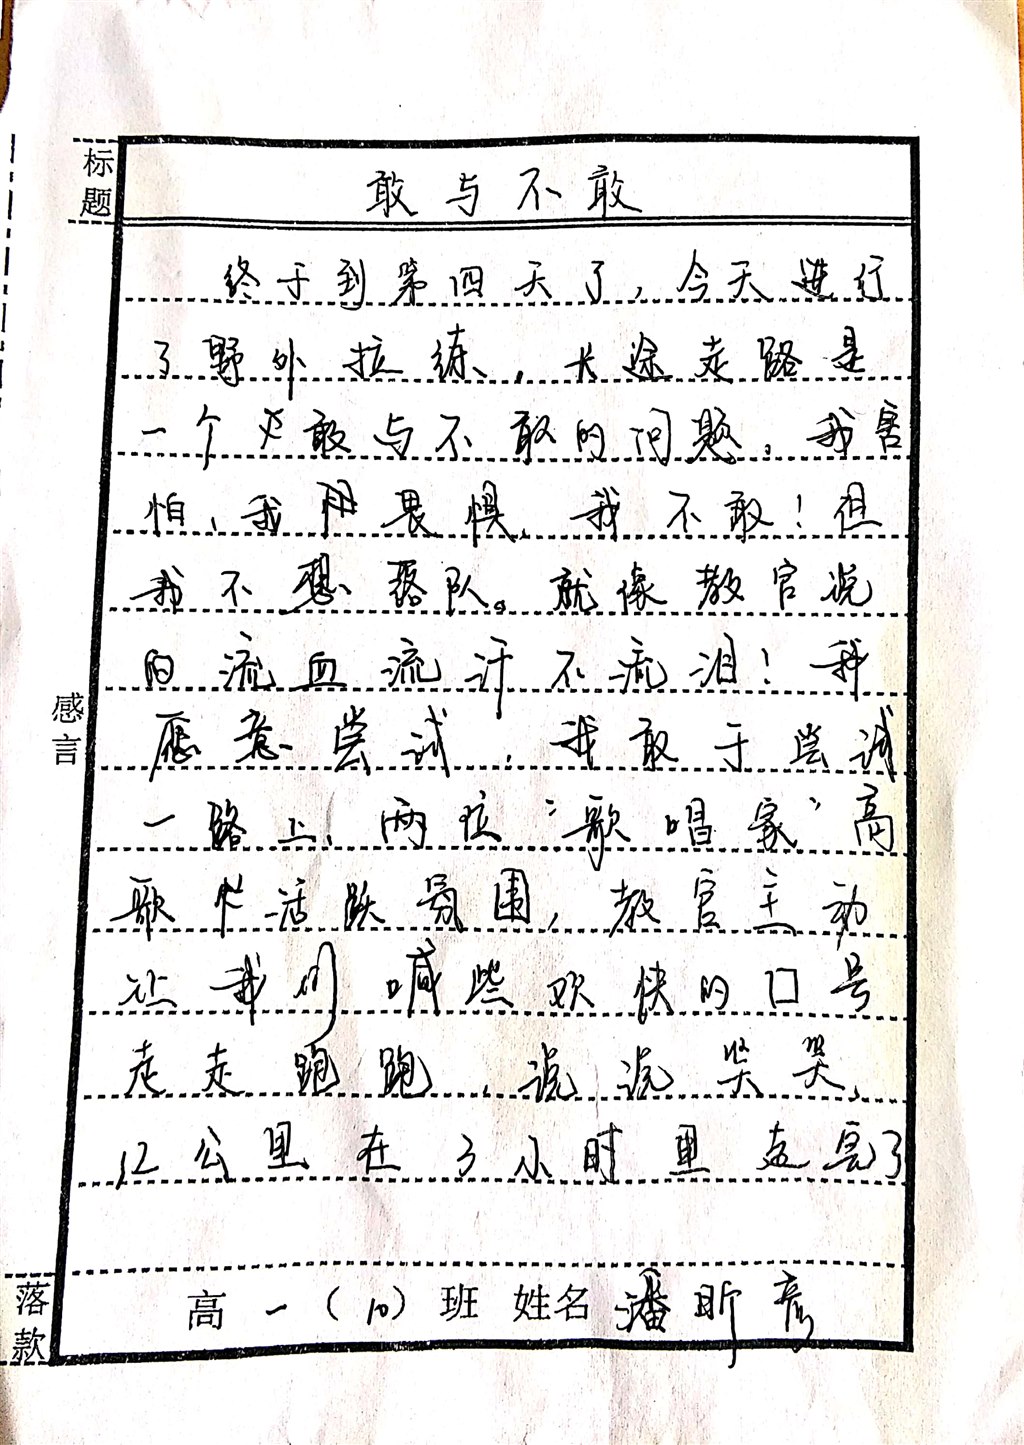 标题
敢与不敢
终于到第四天了，今天进行
了野外拉练，长途走路是
一个敢与不敢的问题。我害
怕，我畏惧，我不敢！但
我不想落队。就像教官说
的流血流汗不流泪！我
愿意尝试，我敢于尝试
一路上，两位“歌唱家”高
歌活跃氛围，教官主动
让我们喊些欢快的口号
走走跑跑，说说笑笑，
12公里在3小时里走完了
感言
落款
高一（10）班 姓名 潘昕彦